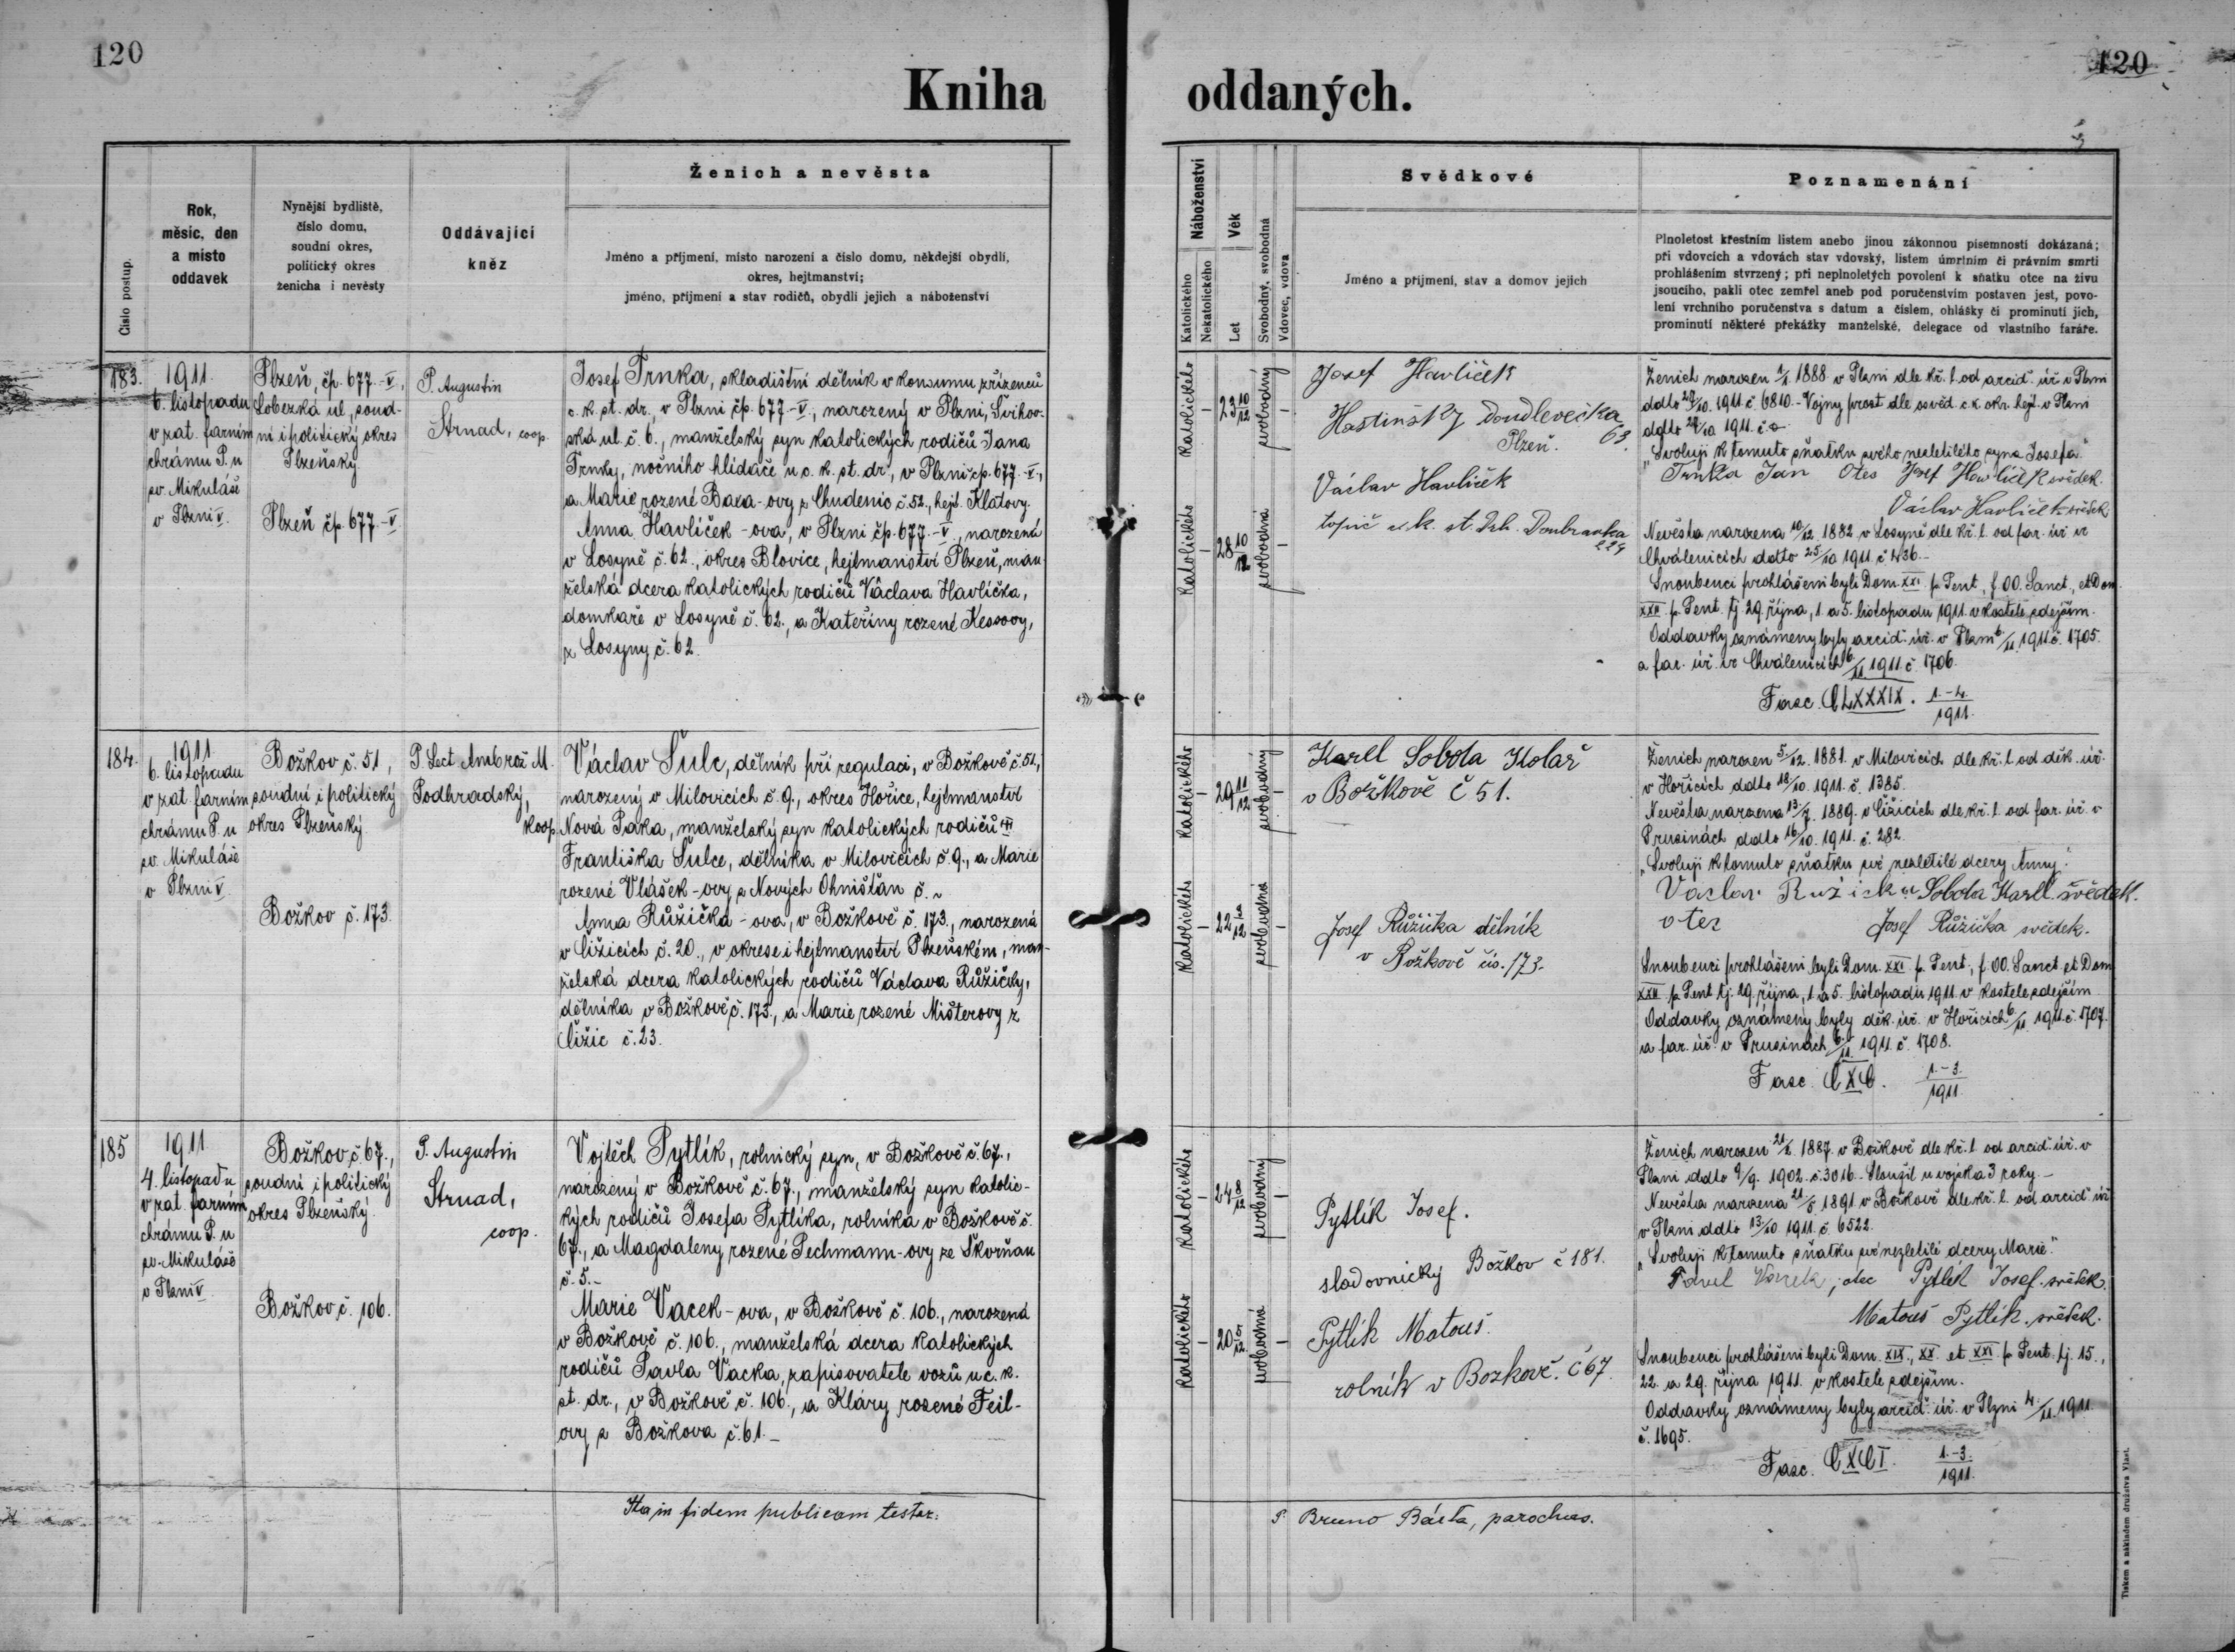 120
120
Kniha oddaných.
Číslo postup.
Rok,
měsíc, den
a místo
oddavek
Nynější bydliště,
číslo domu,
soudní okres,
politický okres
ženicha i nevěsty
Oddávající
kněz
Ženich a nevěsta
Jméno a příjmení, místo narození a číslo domu, někdejší obydlí,
okres, hejtmanství;
jméno, příjmení a stav rodičů, obydlí jejich a náboženství
Náboženství
Katolického
Nekatolického
Věk
Let
Svobodný, svobodná
Vdovec, vdova
Svědkové
Jméno a příjmení, stav a domov jejich
Poznamenání
Plnoletost křestním listem anebo jinou zákonnou písemností dokázaná;
při vdovcích a vdovách stav vdovský, listem úmrtním či právním smrti
prohlášením stvrzený; při neplnoletých povolení k sňatku otce na živu
jsoucího, pakli otec zemřel aneb pod poručenstvím postaven jest, povo-
lení vrchního poručenstva s datum a číslem, ohlášky či prominutí jich,
prominutí některé překážky manželské, delegace od vlastního faráře.
183.
1911.
6. listopadu
v zat. farním
chrámu P. u
sv. Mikuláše
v Plzni V.
Plzeň, čp. 677.-V,
Lobezká ul., soud-
ní i politický okres
Plzeňský.
Plzeň čp. 677.-V
P. Augustin
Strnad, coop.
Josef Trnka, skladištní dělník v konsumu zřízenců
c. k. st. dr., v Plzni čp. 677.-V., narozený v Plzni, Švihov-
ská ul. č. 6., manželský syn katolických rodičů Jana
Trnky, nočního hlídače u c. k. st. dr., v Plzni čp. 677.-V.,
a Marie rozené Baxa-ovy z Chudenic č. 52., hejt. Klatovy.
Anna Havlíček-ova, v Plzni čp. 677.-V., narozená
v Losyně č. 62., okres Blovice, hejtmanství Plzeň, man-
želská dcera katolických rodičů Václava Havlíčka,
domkaře v Losyně č. 62., a Kateřiny rozené Kessovy,
z Losyny č. 62.
katolického
–
23 10/12
svobodný
–
katolického
–
28 10/12
svobodná
–
Josef Havlíček
Hostinský Doudlevečka
Plzeň. 63.
Václav Havlíček
topič c. k. st. Drh. Doubravka
224
Ženich narozen 1/1. 1888. v Plzni dle kř. l. od arcid. úř. v Plzni
ddto 24/10. 1911. č. 6810.- Vojny prost dle osvěd. c. k. okr. hejt. v Plzni
ddto 28/10 1911. č.
„Svoluji k tomuto sňatku svého nezletilého syna Josefa."
Trnka Jan Otes Josef Havlíček svědek.
Václav Havlíček svědek
Nevěsta narozena 10/12. 1882 v Losyně dle kř. l. od far. úř. ve
Chválenicích ddto 25/10 1911. č. 436.-
Snoubenci prohlášeni byli Dom. XXI. p. Pent., f. OO. Sanct., et Dom
XXII. p. Pent. tj. 29. října, 1. a 5. listopadu 1911. v kostele zdejším.
Oddavky oznámeny byly arcid. úř. v Plzni 6/11. 1911. č. 1705.
a far. úř. ve Chválenicích 6/11. 1911. č. 1706.
Fasc. CLXXXIX. 1.-4./1911.
184.
1911
6. listopadu
v zat. farním
chrámu P. u
sv. Mikuláše
v Plzni V.
Božkov č. 51,
soudní i politický
okres Plzeňský.
Božkov č. 173.
P. Lect Ambrož M.
Podhradský,
koop.
Václav Šulc, dělník při regulaci, v Božkově č. 51.,
narozený v Milovicích č. 9., okres Hořice, hejtmanství
Nová Paka, manželský syn katolických rodičů
Františka Šulce, dělníka v Milovicích č. 9., a Marie
rozené Vlášek-ovy z Nových Ohnišťan č. ~
Anna Růžička-ova, v Božkově č. 173., narozená
v Čižicích č. 20., v okrese i hejtmanství Plzeňském, man-
želská dcera katolických rodičů Václava Růžičky,
dělníka v Božkově č. 173., a Marie rozené Mišterovy z
Čižic č. 23.
katolického
–
29 11/12
svobodný
–
katolického
–
22
svobodná
–
Karll Sobota Kolař
v Božkově č 51.
Josef Růžička dělník
v Božkově čís. 173.
Ženich narozen 5./12. 1881. v Milovicích dle kř. l. od děk. úř.
v Hořicích ddto 18/10. 1911. č. 1385.
Nevěsta narozena 13/7. 1889. v Čižicích dle kř. l. od far. úř. v
Prusinách ddto 16/10. 1911. č. 282.
„Svoluji k tomuto sňatku své nezletilé dcery Anny."
Vaclav Ružička Sobota Karll svědek.
otec Josef Růžička svědek.
Snoubenci prohlášeni byli Dom. XXI. p. Pent., f. OO. Sanct. et Dom
XXII. p. Pent. tj. 29. října, 1. a 5. listopadu 1911. v kostele zdejším
Oddavky oznámeny byly děk. úř. v Hořicích 6/11. 1911. č. 1707.
a far. úř. v Prusinách 6/11. 1911. č. 1708.
Fasc. CXC. 1.-3./1911.
185
1911
4. listopadu
v zat. farním
chrámu P. u
sv. Mikuláše
v Plzni V
Božkov č. 67.,
soudní i politický
okres Plzeňský.
Božkov č. 106.
P. Augustin
Strnad,
coop.
Vojtěch Pytlík, rolnický syn, v Božkově č. 67.,
narozený v Božkově č. 67., manželský syn katolic-
kých rodičů Josefa Pytlíka, rolníka v Božkově č.
67., a Magdaleny rozené Pechmann-ovy ze Skvrňan
č. 5.-
Marie Vacek-ova, v Božkově č. 106., narozená
v Božkově č. 106., manželská dcera katolických
rodičů Pavla Vacka, zapisovatele vozů u c. k.
st. dr., v Božkově č. 106., a Kláry rozené Feil-
ovy z Božkova č. 61.-
katolického
–
24 8/12
svobodný
–
katolického
–
20 5/12
svobodná
–
Pytlík Josef.
sladovnický Božkov č 181.
Pytlík Matouš.
rolník v Bozkově. č 67.
Ženich narozen 21/2. 1887. v Božkově dle kř. l. od arcid. úř. v
Plzni ddto 9/9. 1902. č. 3016.- Sloužil u vojska 3 roky.-
Nevěsta narozena 21/5. 1891 v Božkově dle kř. l. od arcid. úř.
v Plzni ddto 13/10 1911. č. 6522.
„Svoluji k tomuto sňatku své nezletilé dcery Marie."
Pavel Vacek, otec Pytlík Josef. svědek.
Matouš Pytlík. svědek.
Snoubenci prohlášeni byli Dom. XIX., XX. et XXI. p. Pent. tj. 15.,
22. a 29. října 1911. v kostele zdejším.
Oddavky oznámeny byly arcid. úř. v Plzni 4./11. 1911.
č. 1695.
Fasc. CXCI. 1.-3./1911.
Ita in fidem publicam testor:
P. Bruno Bárta, parochus.
Tiskem a nákladem družstva Vlasť.